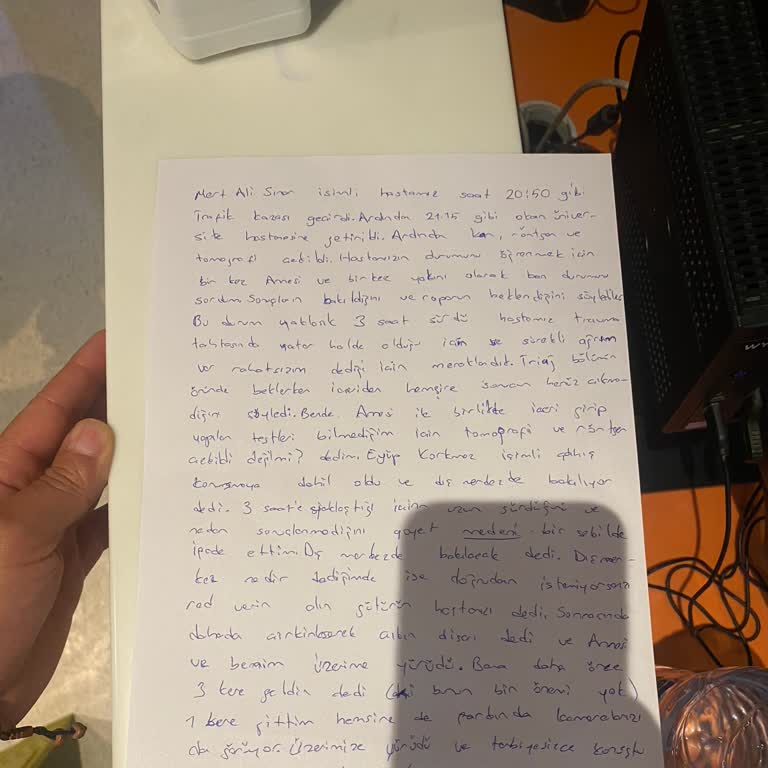 Mert Ali Sinan isimli hastamız saat 20:50 gibi
Trafik kazası geçirdi. Ardından 21:15 gibi okan üniver-
site hastanesine getirildi. Ardından kan, röntgen ve
tomografi çekildi. Hastamızın durumunu öğrenmek için
bir kez Annesi ve bir kez yakını olarak ben durumunu
sordum. Sonuçların bakıldığını ve raporun beklendiğini söylediler.
Bu durum yaklaşık 3 saat sürdü hastamız travma
tahtasında yatar halde olduğu için ve sürekli ağrım
var rahatsızım dediği için meraklandık. Triaj bölümün
önünde beklerken içeriden hemşire sonucu henüz çıkma-
dığını söyledi. Bende Annesi ile birlikte içeri girip
yapılan testleri bilmediğim için tomografi ve röntgen
çekildi değilmi? dedim. Eyüp Korkmaz isimli çalışan
konuşmaya dahil oldu ve dış merkezde bakılıyor
dedi. 3 saat'e yaklaştığı için uzun sürdüğünü ve
neden sonuçlanmadığını gayet medeni bir şekilde
ifade ettim. Dış merkezde bakılacak dedi. Dış mer-
kez nedir dediğimde ise doğrudan isteniyorsanız
red verin alın götürün hastanızı dedi. Sonrasında
dahada çirkinleşerek çıkın dışarı dedi ve Annesi
ve benim üzerime yürüdü. Bana daha önce
3 kere geldin dedi (ki bunun bir önemi yok)
1 kere gittim hemşire de yanında kameralarınız
da görüyor. Üzerimize yürüdü ve terbiyesizce konuştu